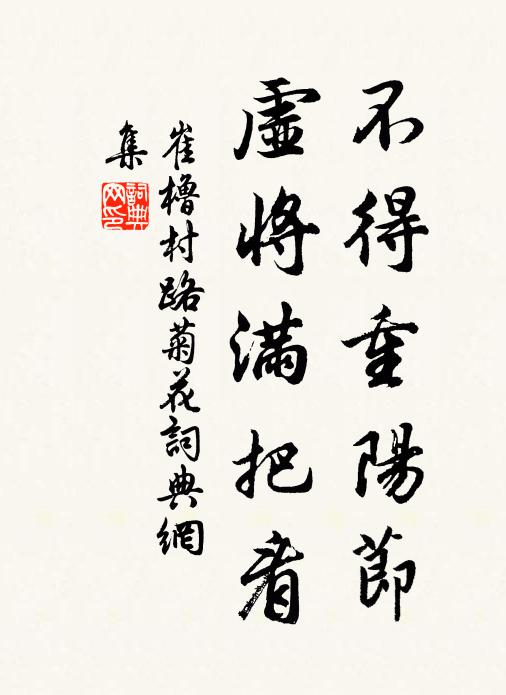 不得重陽節
虛將滿把看
崔櫓村路菊花詞典網
集
詞典
网印